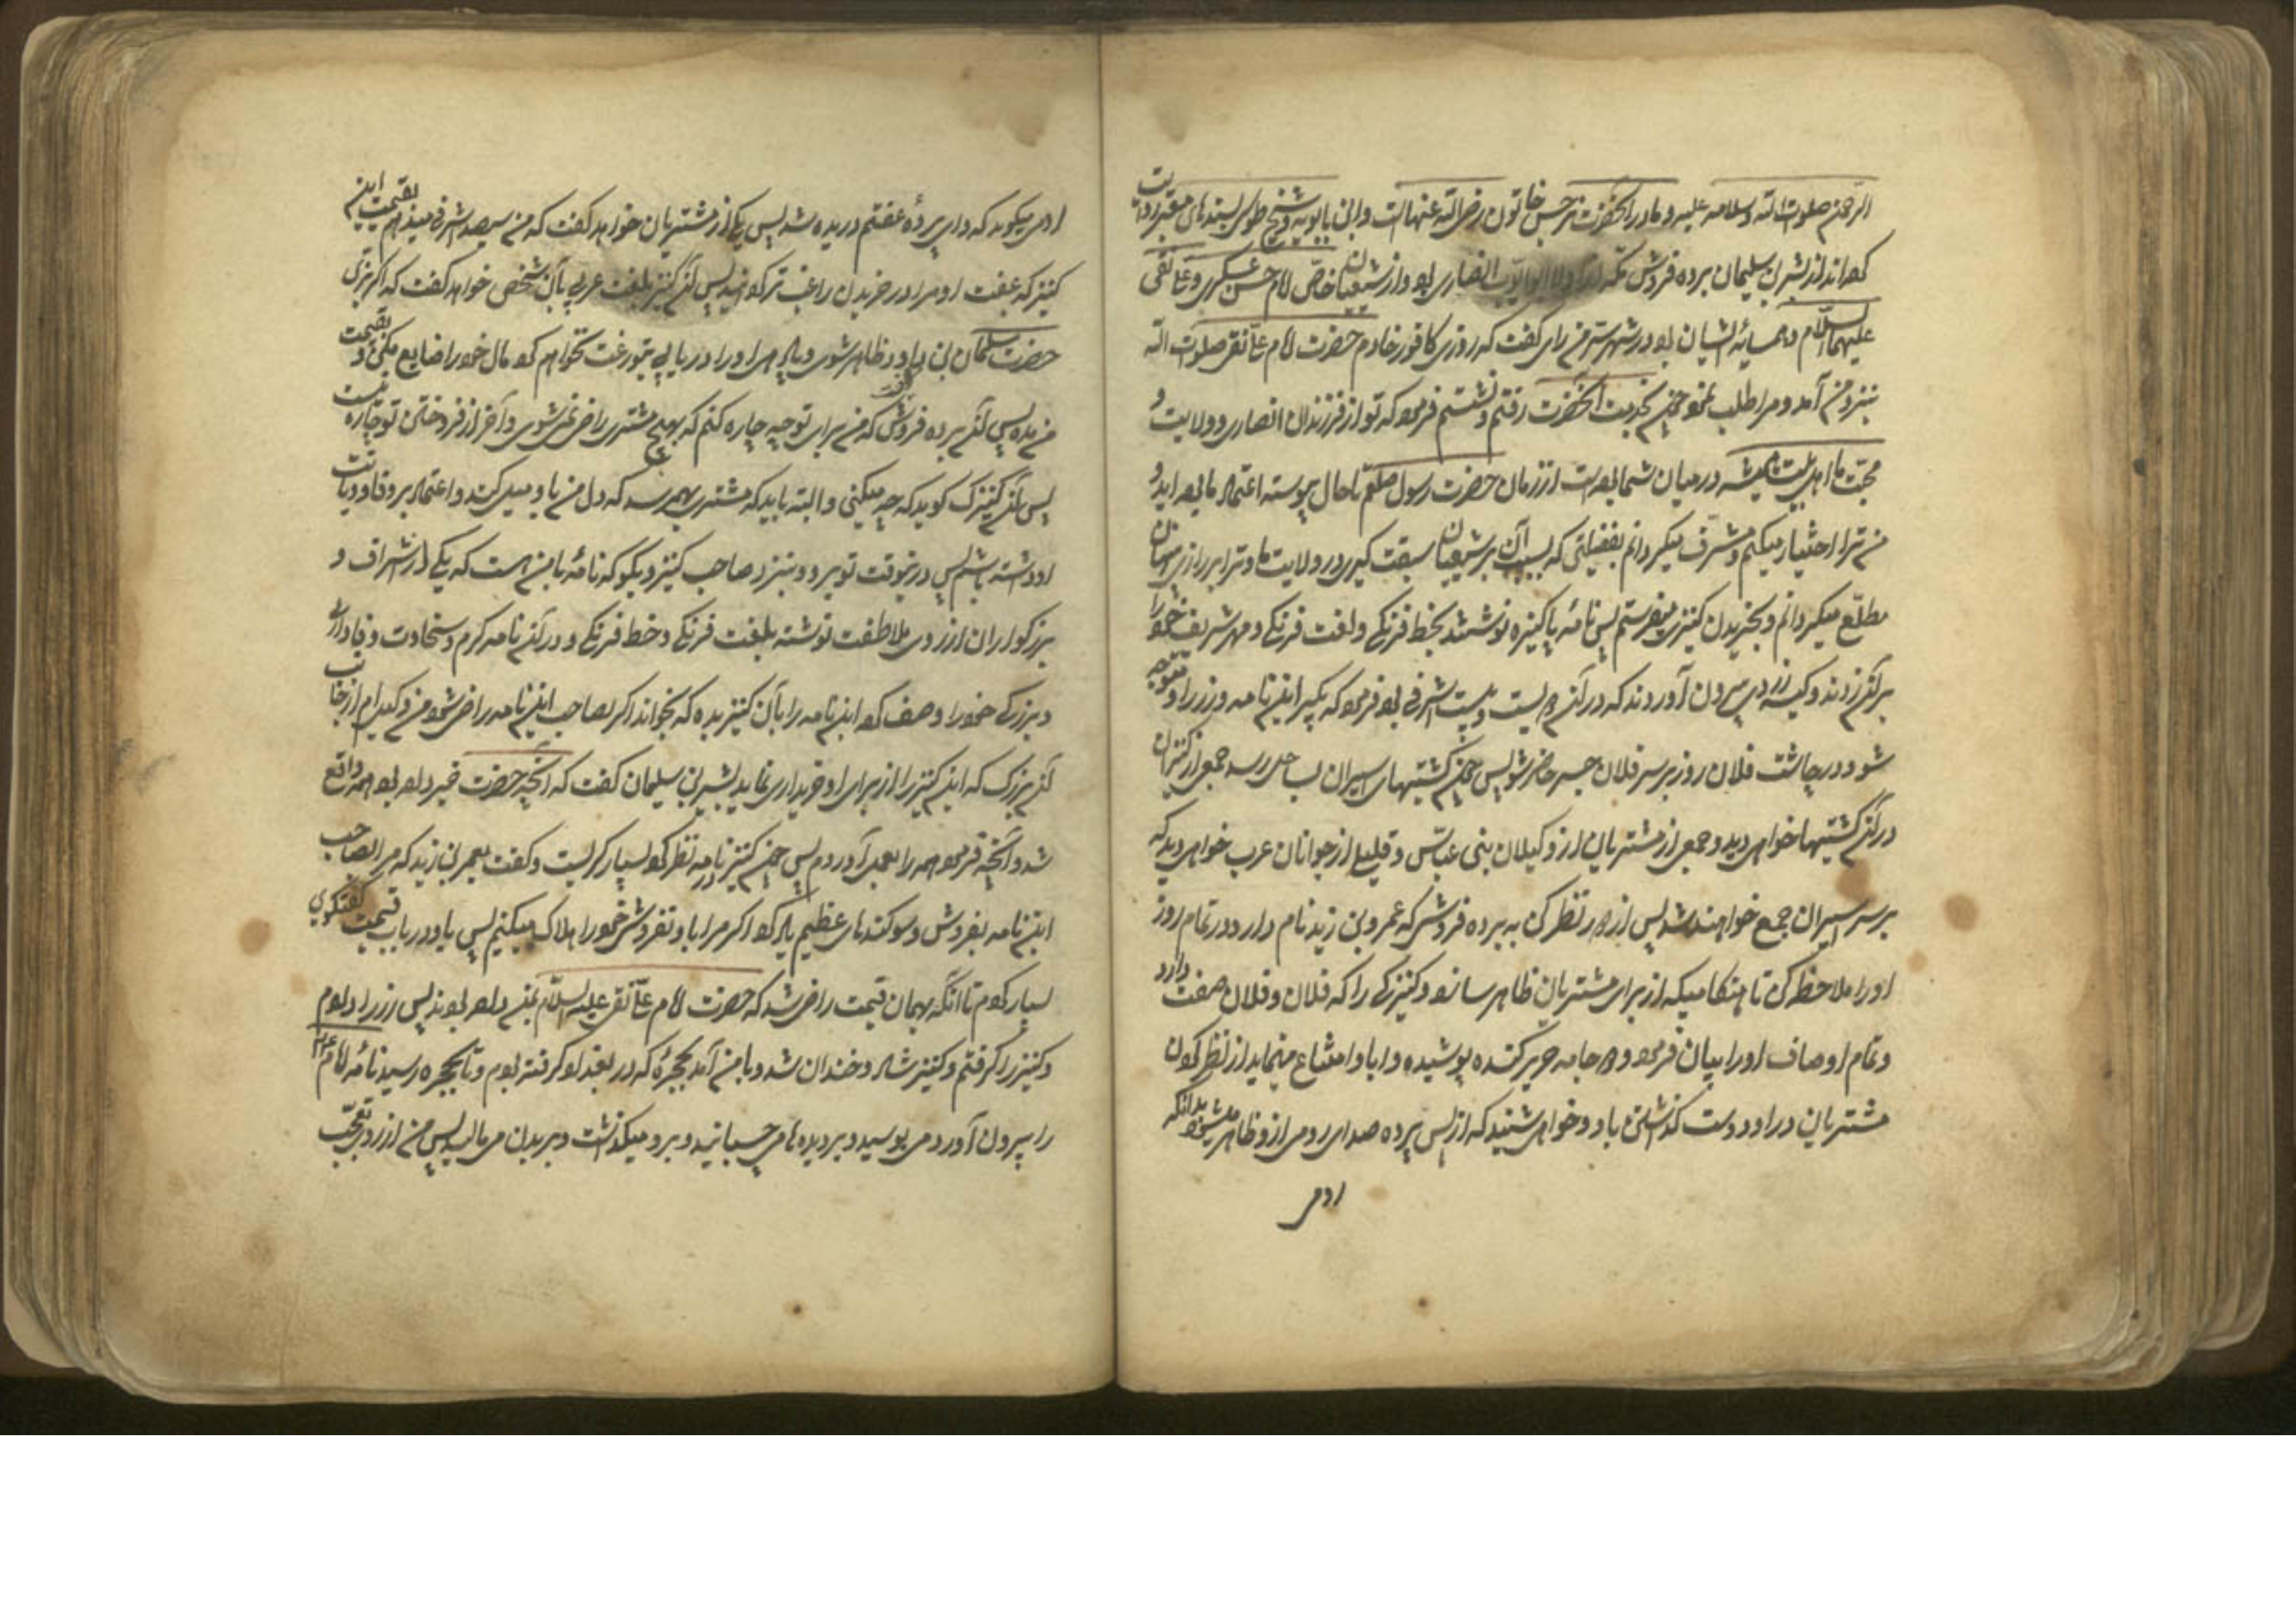 الرحمن صلوت الله وسلامه علیه و مادر آنحضرت نرجس خاتون رضی الله عنهاست و ابن بابویه و شیخ طوسی بسندهای معتبر روایت
کرده‌اند از بشر بن سلیمان برده فروش که از اولاد ابو ایوب انصاری بود و از شیعیان خاص امام حسن عسکری و علی نقی
علیهما السلام و همسایه ایشان بود در شهر سر من رای گفت که روزی کافور خادم حضرت امام علی نقی صلوت الله
بنزد من آمد و مرا طلب نمود چون بخدمت آنحضرت رفتم و نشستم فرمود که تو از فرزندان انصاری و ولایت و
محبت ما اهل بیت همیشه در میان شما بوده است از زمان حضرت رسول صلعم تا حال پیوسته اعتماد ما بوده‌اید و
من ترا اختیار میکنم و مشرف میگردانم بفضیلتی که بسبب آن بر شیعیان سبقت گیری در ولایت ما و ترا بر رازی پنهان
مطلع میگردانم و بخریدن کنیزی میفرستم پس نامه پاکیزه نوشتند بخط فرنگی و لغت فرنگی و مهر شریف خود را
بر آن زدند و کیسه زری بیرون آوردند که در آن دویست و بیست اشرفی بود فرمود که بگیر این نامه و زر را و متوجه
شو و در چاشت فلان روز بر سر فلان جسر حاضر شو پس چون کشتیهای اسیران بساحل رسد جمعی از کنیزان
در آن کشتیها خواهی دید و جمعی از مشتریان از وکیلان بنی عباس و قلیلی از جوانان عرب خواهی دید که
بر سر اسیران جمع خواهند شد پس از دور نظر کن به برده فروش که عمرو بن زید نام دارد در تمام روز
او را ملاحظه کن تا هنگامیکه از برای مشتریان ظاهر سازد کنیزکی را که فلان و فلان صفت دارد
و تمام اوصاف او را بیان فرمود و جامه حریر کنده پوشیده و ابا و امتناع مینماید از نظر کردن
مشتریان در او و دست گذاشتن باو و خواهی شنید که از پس پرده صدای رومی از و ظاهر میشود بدانکه
رومی
رومی میگوید که وای پرده عفتم دریده شد پس یکی از مشتریان خواهد گفت که من سیصد اشرفی میدهم بقیمت این
کنیز که عفت او مرا در خریدن راغب تر کردانید پس آن کنیز بلغت عربی بآن شخص خواهد گفت که اگر بزی
حضرت سلیمان بن داود ظاهر شوی و پادشاهی او را دریابی بتو رغبت نخواهم کرد مال خود را ضایع مکن و بقیمت
من مده پس آن برده فروش گوید که من برای تو چه چاره کنم که بهیچ مشتری راضی نمی شوی و آخر از فروختن تو چاره نیست
پس آن کنیزک گوید که چه تعجیل میکنی و البته باید که مشتری بهم رسد که دل من باو میل کند و اعتماد بر وفا و دیانت
او داشته باشم پس در آنوقت تو برو و بنزد صاحب کنیز و بگو که نامه با من هست که یکی از اشراف و
بزرگواران از روی ملاطفت نوشته بلغت فرنگی و خط فرنگی و در آن نامه کرم و سخاوت و وفاداری
و بزرگی خود را وصف کرده این نامه را بآن کنیز بده که بخواند اگر بصاحب این نامه راضی شود من وکیلم از جانب
آن بزرگ که این کنیز را از برای او خریداری نماید بشر بن سلیمان گفت که آنچه حضرت خبر داده بود همه واقع
شد و آنچه فرموده بود همه را بعمل آوردم پس چون کنیز در نامه نظر کرد بسیار گریست و گفت بعمر بن زید که مرا بصاحب
این نامه بفروش و سوگندهای عظیم یاد کرد که اگر مرا باو نفروشی خود را هلاک میکنم پس باو در باب قیمت گفتگوی
بسیار کردم تا آنکه بهمان قیمت راضی شد که حضرت امام علی نقی علیه السلام بمن داده بودند پس زر را دادم
و کنیز را گرفتم و کنیز شاد و خندان شد و با من آمد بحجره که در بغداد گرفته بودم و تا بحجره رسید نامه امام
را بیرون آورد و می بوسید و بر دیده‌ها می چسبانید و بر رو میگذاشت و بر بدن می مالید پس من از روی تعجب